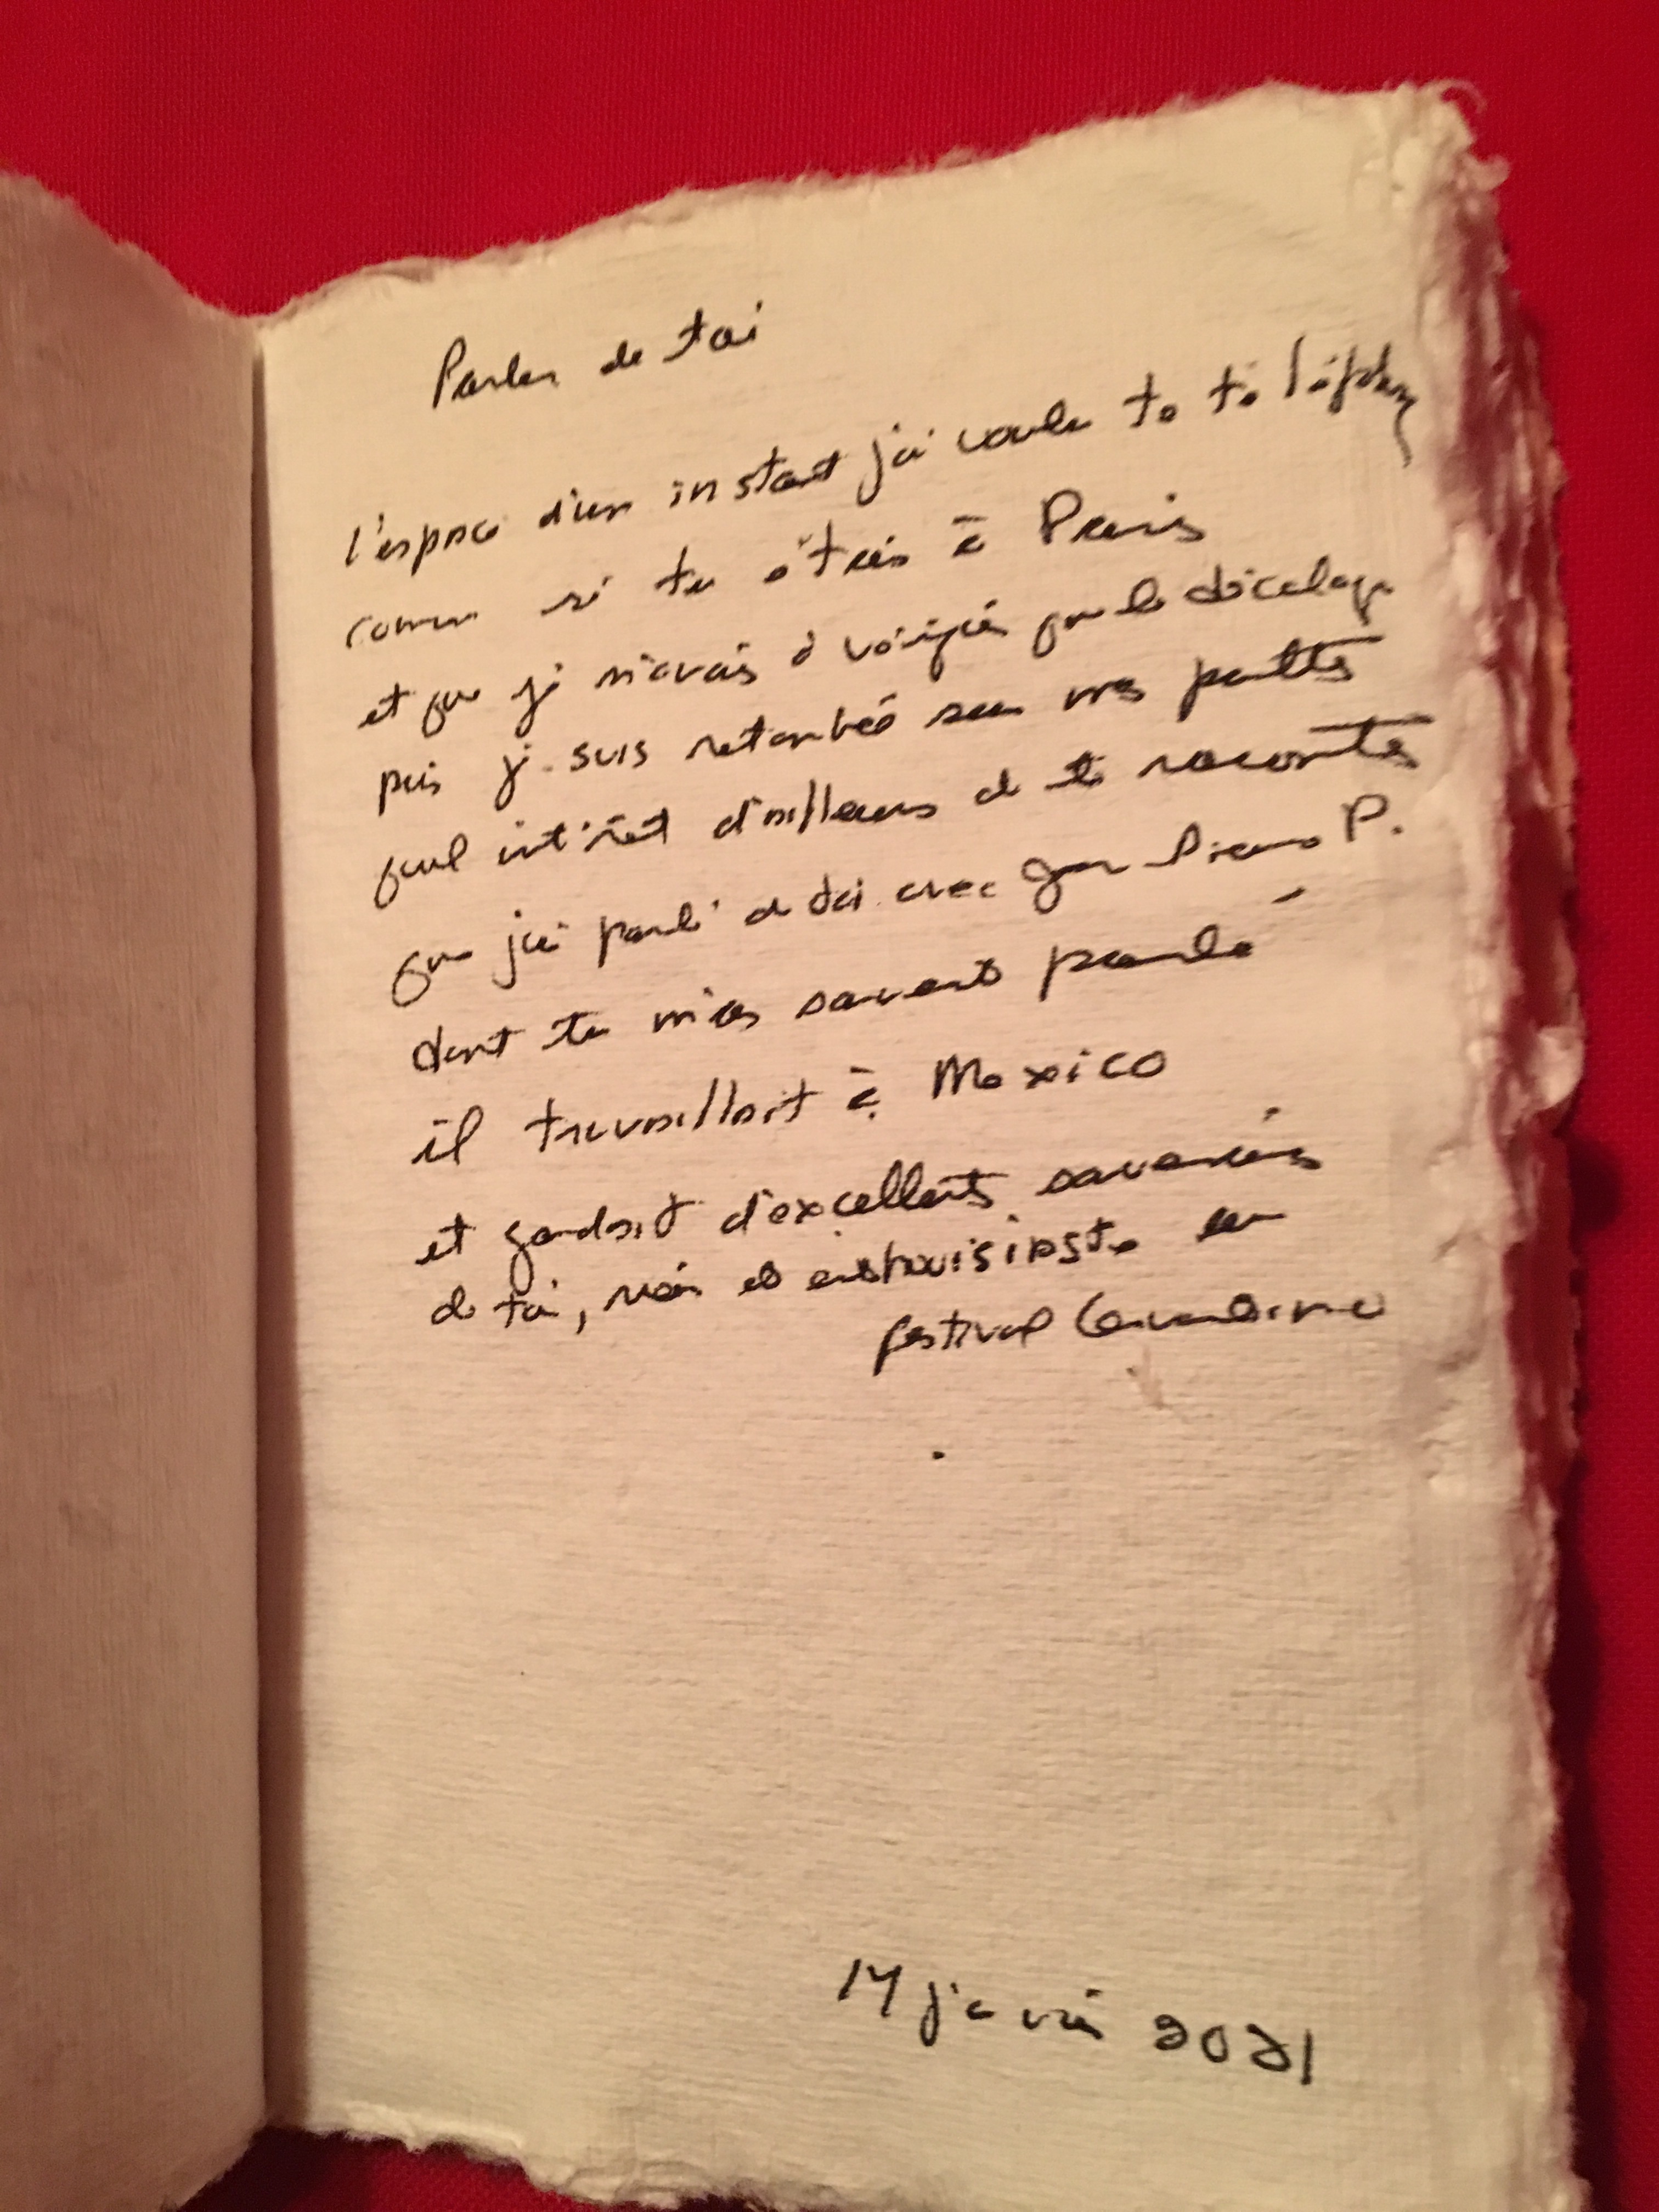 Parler de toi
l'espace d'un instant j'ai voulu te téléphoner
comme si tu étais à Paris
et que je n'avais à que le décalage
puis je suis retombée sur mes pattes
quel intérêt d'ailleurs de te raconter
que j'ai parlé de toi avec Jean Pierre P.
dont tu m'as souvent parlé
il travaillait à Mexico
et gardait d'excellents souvenirs
de toi, et enthousiaste au
festival Cervantino
14 janvier 2021